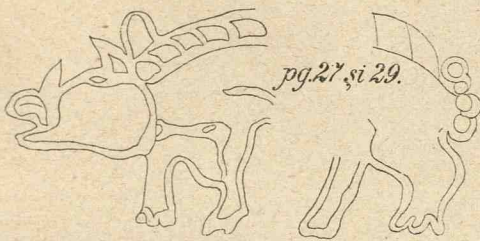 pg. 27 și 29.